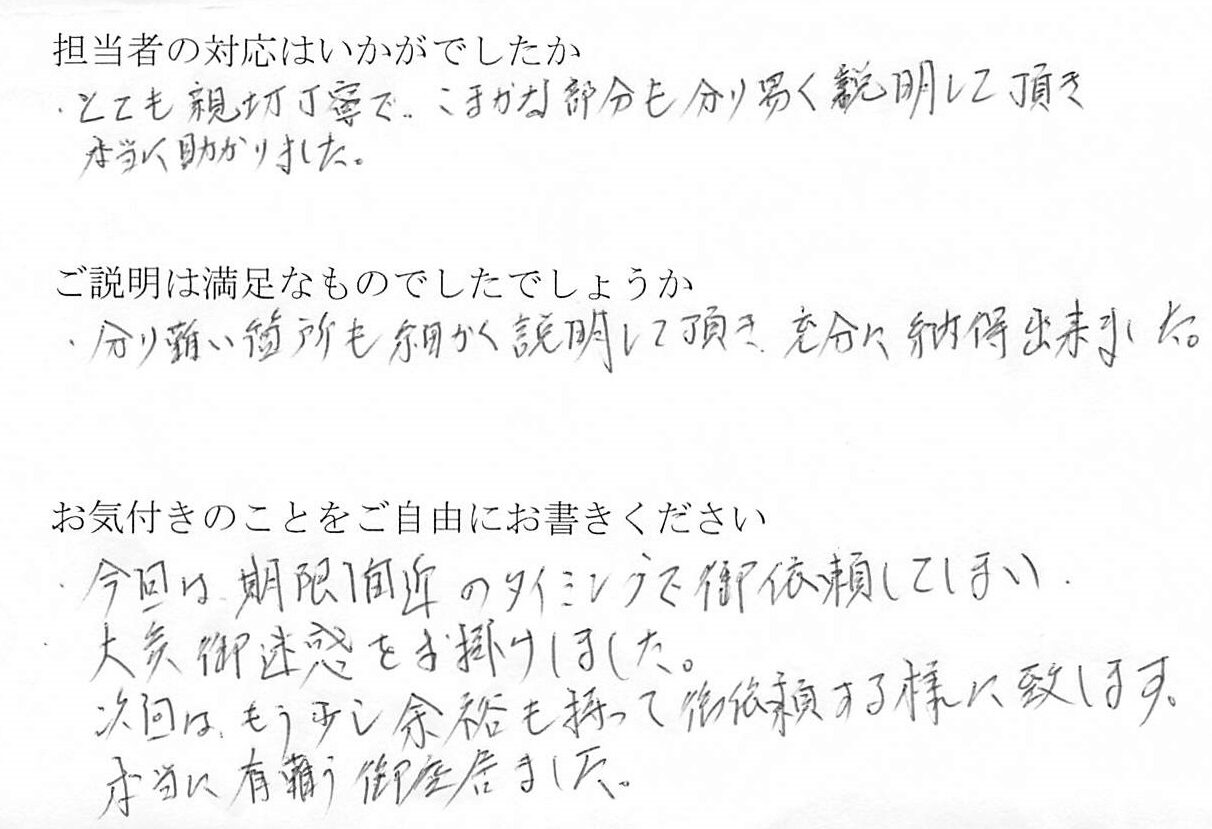 担当者の対応はいかがでしたか
・とても親切丁寧で、こまかな部分も分り易く説明して頂き
本当に助かりました。
ご説明は満足なものでしたでしょうか
・分り難い箇所も細かく説明して頂き、充分に納得出来ました。
お気付きのことをご自由にお書きください
・今回は、期限間近のタイミングで御依頼してしまい、
大変御迷惑をお掛けしました。
次回は、もう少し余裕も持って御依頼する様に致します。
本当に有難う御座居ました。